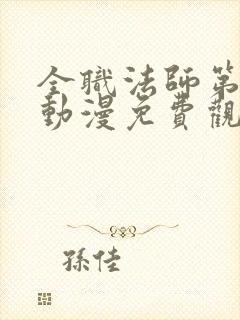 全職法師第
動漫免費觀
孫佳